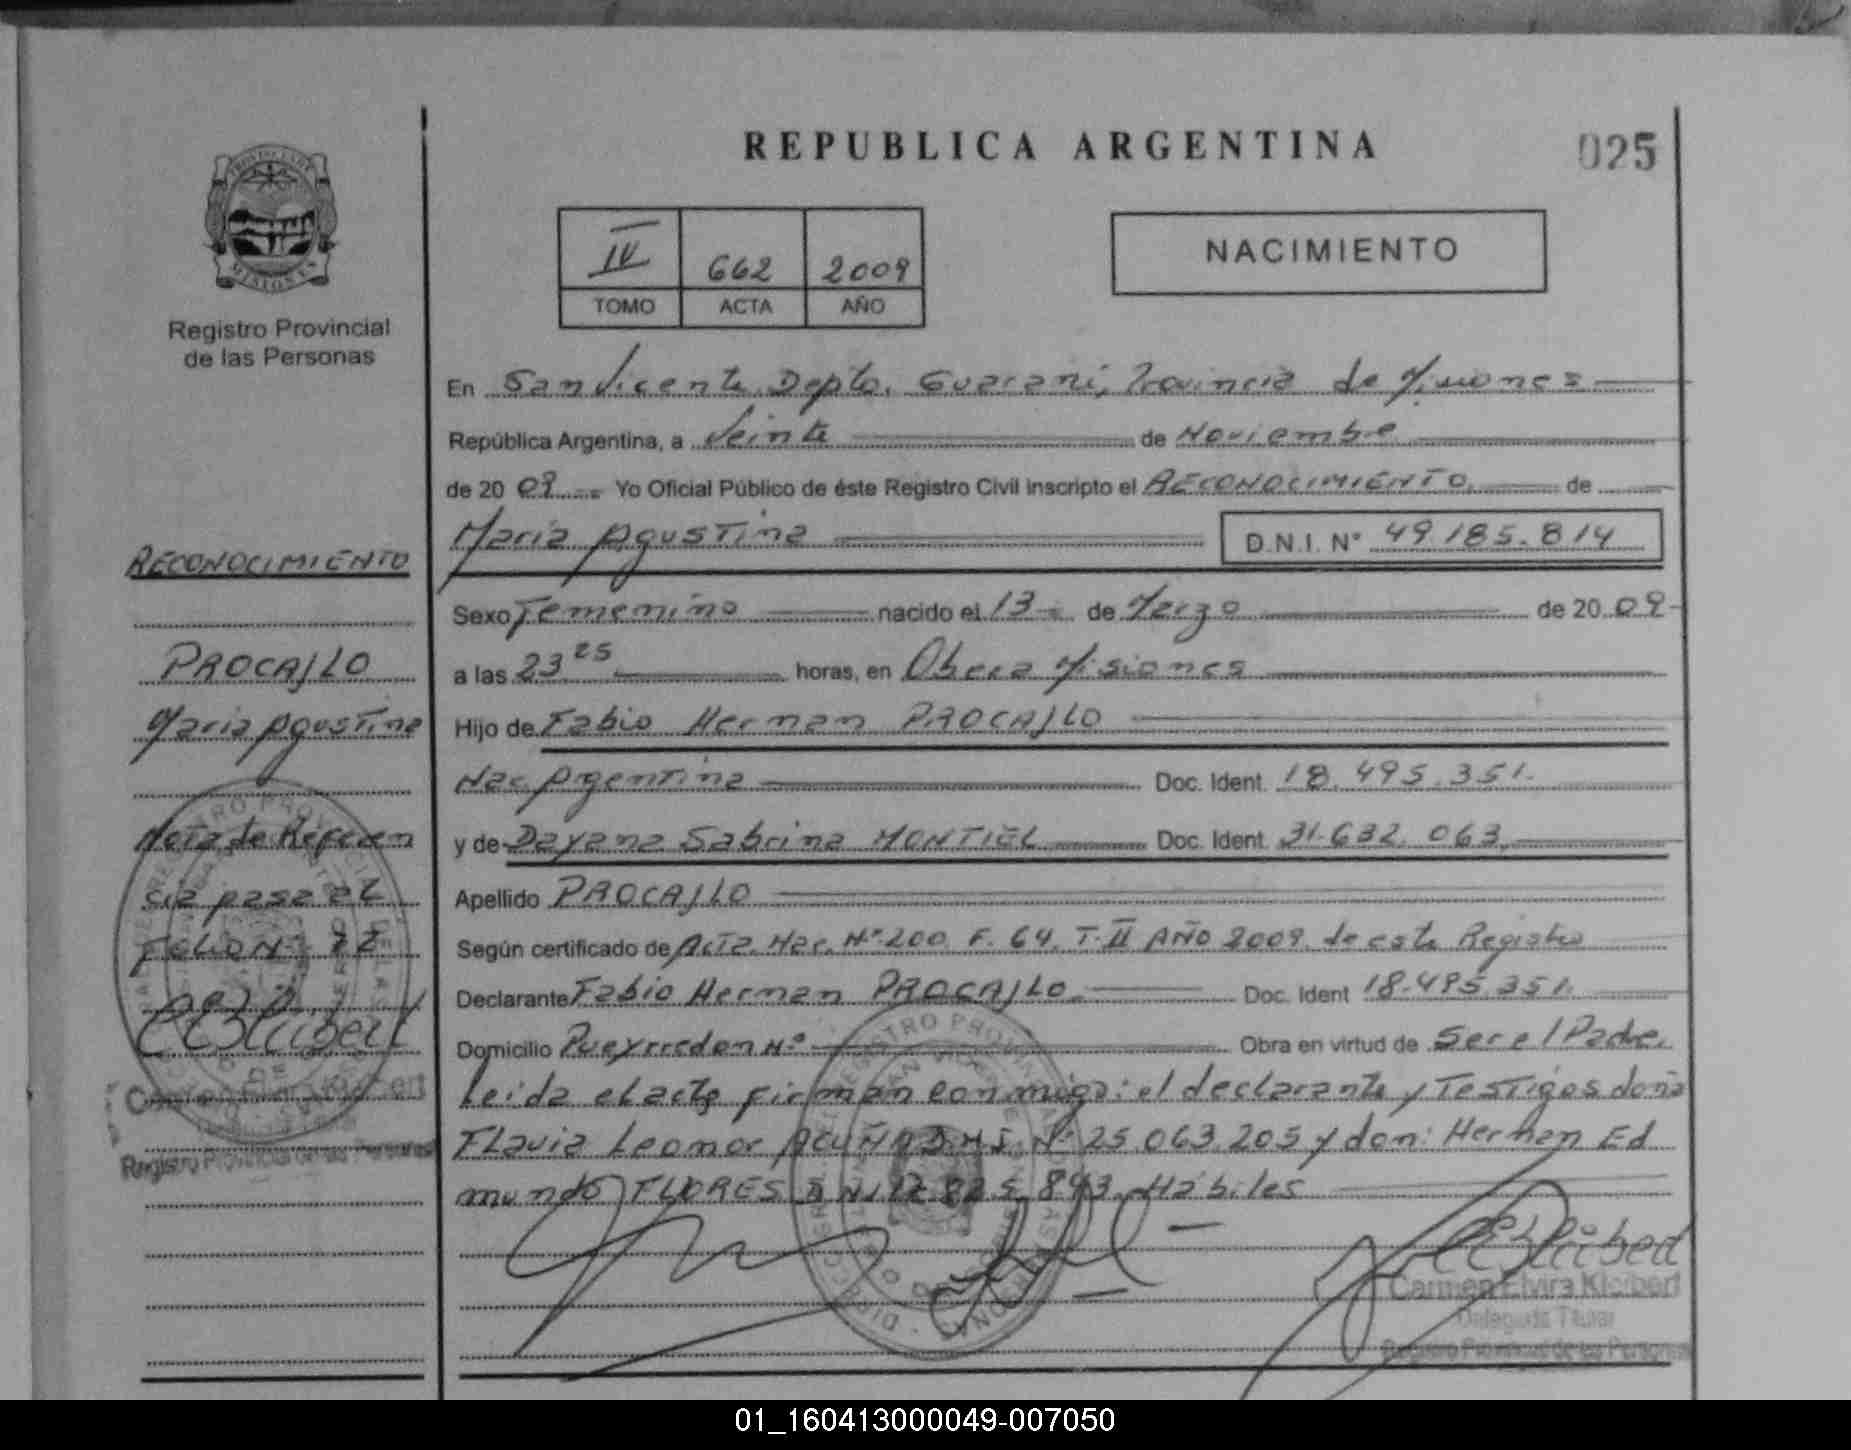 REPUBLICA ARGENTINA
025
PROVINCIA DE
MISIONES
Registro Provincial
de las Personas
IV 662 2009
TOMO ACTA AÑO
NACIMIENTO
En San Vicente Depto. Guarani, Provincia de Misiones
República Argentina, a Veinte de Noviembre
de 20 09 Yo Oficial Público de éste Registro Civil inscripto el RECONOCIMIENTO. de
Maria Agustina D.N.I. N° 49.185.814
Sexo Femenino nacido el 13 de Marzo de 20 09
a las 23 25 horas, en Obera Misiones
Hijo de Fabio Hernan PROCAJLO
Nac. Argentina Doc. Ident. 18.495.351.
y de Dayana Sabrina MONTIEL Doc. Ident. 31.632.063.
Apellido PROCAJLO
Según certificado de Acta. Nac. N° 200. F. 64. T. II AÑO 2009. de este Registro
Declarante Fabio Hernan PROCAJLO. Doc. Ident 18.495.351.
Domicilio Pueyrredon N° Obra en virtud de Ser el Padre.
Leida el acta firman conmigo: el declarante y Testigos doña
Flavia Leonor ACUÑA D.N.I. N° 25.063.205 y don: Hernan Ed
mundo FLORES D.N.I. 893. Hábiles
Carmen Elvira Kleibert
Delegada Titular
Registro Provincial de las Personas
RECONOCIMIENTO
PROCAJLO
Maria Agustina
Nota de Referen
cia pasa al
FOLIO N°
Carmen Elvira Kleibert
Registro Provincial de las Personas
01_160413000049-007050